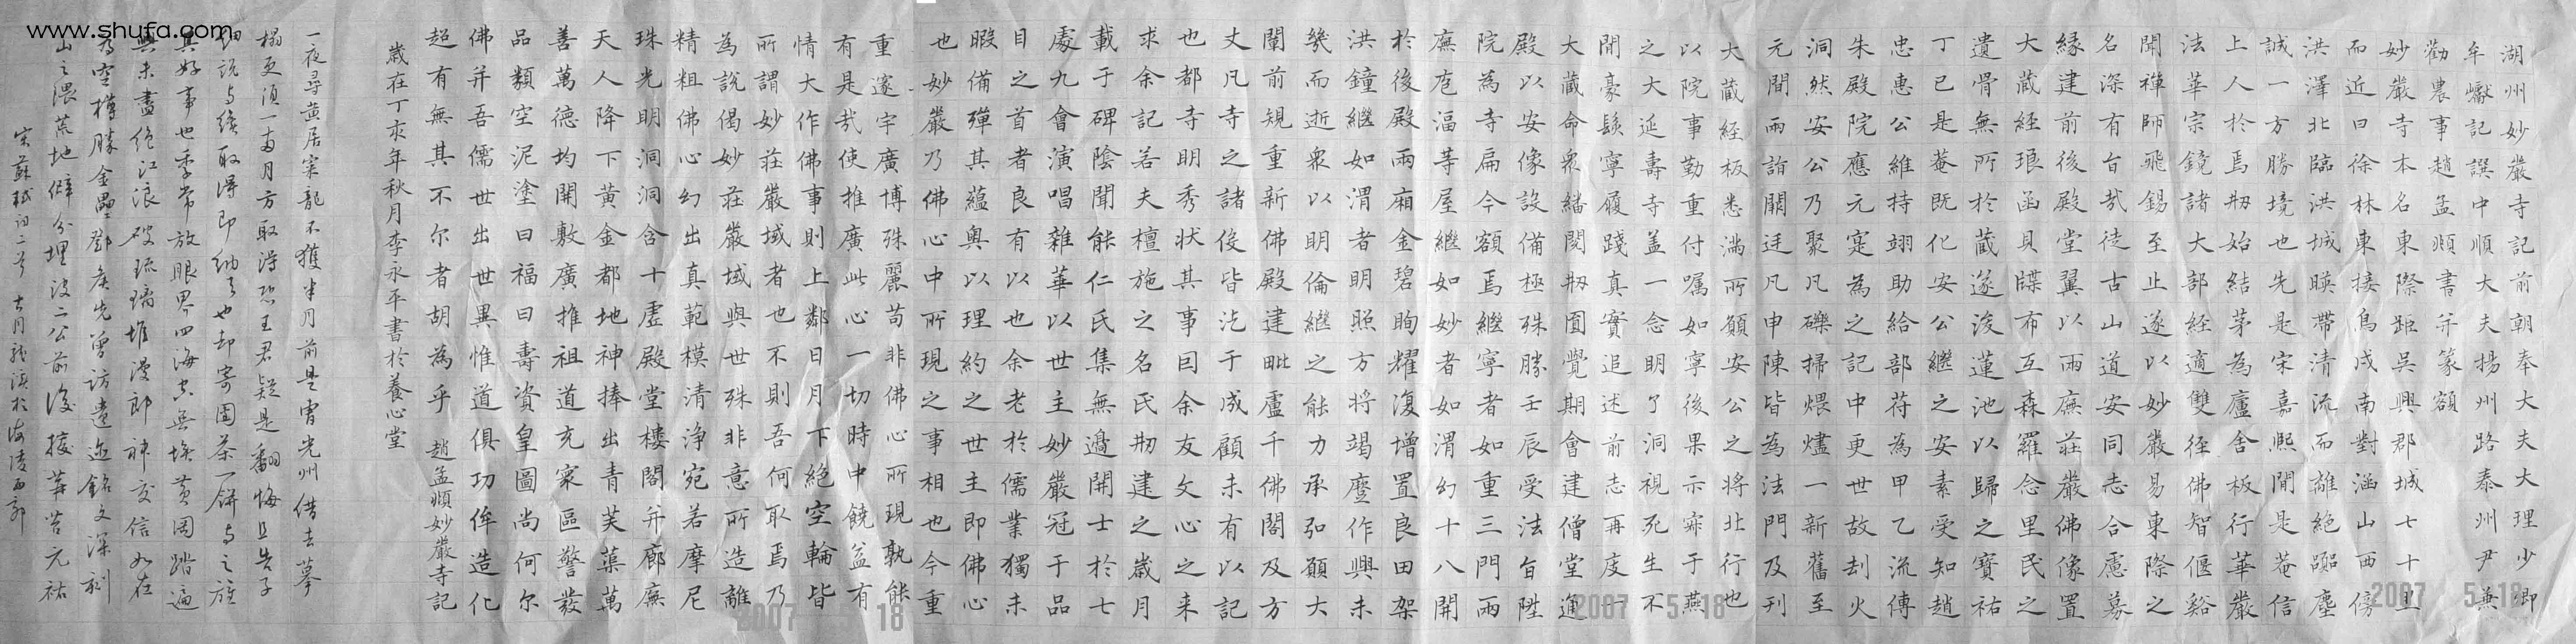 湖州妙嚴寺記前朝奉大夫大理少卿
牟巘記譔中順大夫揚州路泰州尹兼
勸農事趙孟頫書并篆額
妙嚴寺本名東際距吳興郡城七十里
而近曰徐林東接烏戍南對涵山西傍
洪澤北臨洪城暎帶清流而離絕囂塵
誠一方勝境也先是宋嘉熙間是菴信
上人於焉刱始結茅為廬舍板行華嚴
法華宗鏡諸大部經適雙徑佛智偃谿
聞禪師飛錫至止遂以妙嚴易東際之
名深有旨哉徒古山道安同志合慮募
緣建前後殿堂翼以兩廡莊嚴佛像置
大藏經琅函貝牒布互森羅念里民之
遺骨無所於藏遂浚蓮池以歸之寶祐
丁巳是菴既化安公繼之安素受知趙
忠惠公維持翊助給部苻為甲乙流傳
朱殿院應元寔為之記中更世故刦火
洞然安公乃聚凡礫掃煨燼一新舊至
元間兩詣闕廷凡申陳皆為法門及刊
大藏經板悉滿所願安公之將北行也
以院事勤重付囑如寧後果示寂于燕
之大延壽寺盖一念明了洞視死生不
間豪髮寧履踐真實追述前志再度一
大藏命衆繙閱刱圓覺期會建僧堂運
殿以安像設備極殊勝壬辰受法旨陞
院為寺扁今額焉繼寧者如重三門兩
廡庖湢等屋繼如妙者如渭幻十八開
於後殿兩廂金碧眴耀復增置良田架
洪鐘繼如渭者明照方將竭蹙作興未
幾而逝衆以明倫繼之能力承弘願大
闡前規重新佛殿建毗盧千佛閣及方
丈凡寺之諸役皆汔于成顧未有以記
也都寺明秀狀其事囙余友文心之来
求余記若夫檀施之名氏刱建之歲月
載于碑陰聞能仁氏集無邊開士於七
處九會演唱雜華以世主妙嚴冠于品
目之首者良有以也余老於儒業獨未
暇備殫其蘊奥以理約之世主即佛心
也妙嚴乃佛心中所現之事相也今重
重邃宇廣博殊麗苟非佛心所現孰能
有是哉使推廣此心一切時中饒益有
情大作佛事則上鄰日月下絕空輪皆
所謂妙莊嚴域者也不則吾何取焉乃
為說偈妙莊嚴域與世殊非意所造離
精粗佛心幻出真範模清浄宛若摩尼
珠光明洞洞含十虛殿堂樓閣并廊廡
天人降下黃金都地神捧出青芙蕖萬
善萬德均開敷廣推祖道充寰區警發
品類空泥塗曰福曰壽資皇圖尚何尔
佛并吾儒世出世異惟道俱功侔造化
超有無其不尔者胡為乎 趙孟頫妙嚴寺記
歲在丁亥年秋月李永平書於養心堂
一夜尋黃居寀龍不獲半月前是曹光州借去摹
榻更須一兩月方取得恐王君疑是翻悔且告子
細說与纔取得即納去也却寄團茶一餅与之旌
其好事也季常放眼界四海空無塊黃岡踏遍
興未盡絕江浪破琉璃堆漫郎神交信如在
為空樽勝金罍鄧侯先曾訪遺迹銘文深刻
山之隈荒地僻分埋沒二公前後接華苔元祐
宋蘇軾詞二首 於海陵西郭
www.shufa.com
2007 5 18
2007 5 18
2007 5 18